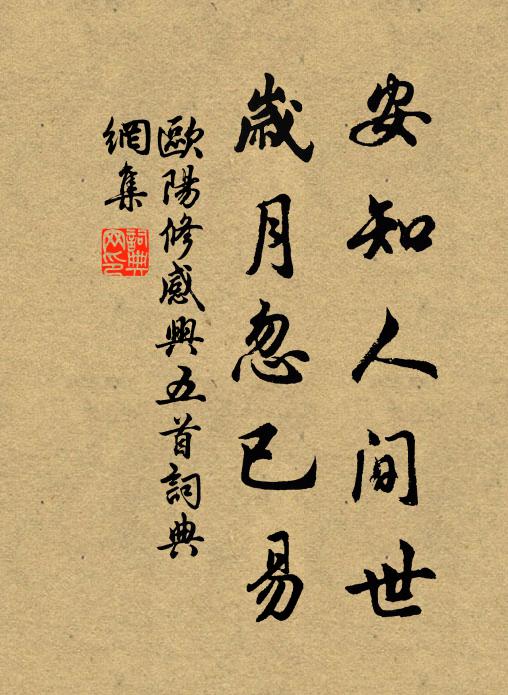 安知人间世
嵗月忽已易
歐陽修感興五首詞典
網集
詞典
网印